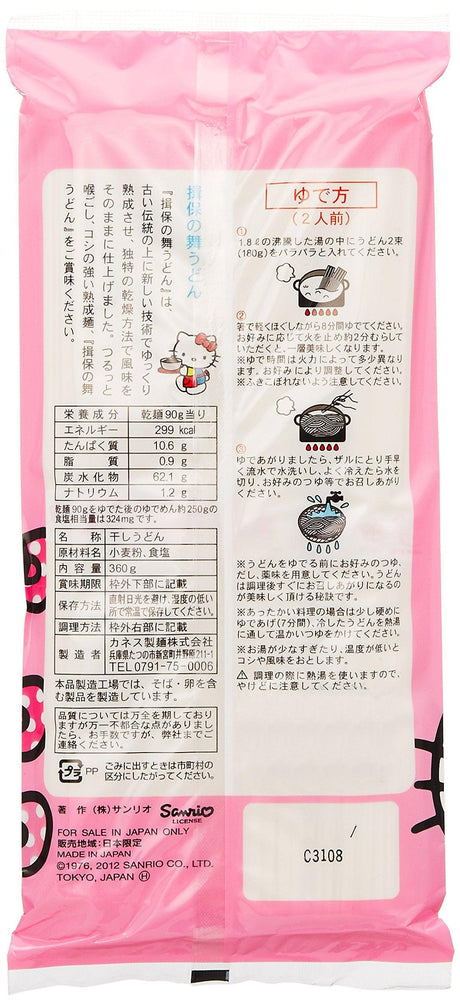 揖保の舞うどん
『揖保の舞うどん』は、
古い伝統の上に新しい技術でゆっくり
熟成させ、独特の乾燥方法で風味を
そのままに仕上げました。つるっと
喉ごし、コシの強い熟成麺、『揖保の舞
うどん』をご賞味ください。
栄養成分 乾麺90g当り
エネルギー 299 kcal
たんぱく質 10.6 g
脂質 0.9 g
炭水化物 62.1 g
ナトリウム 1.2 g
乾麺90gをゆでた後のゆでめん約250gの
食塩相当量は324mgです。
名称 干しうどん
原材料名 小麦粉、食塩
内容量 360g
賞味期限 枠外下部に記載
保存方法 直射日光を避け、湿度の低い
所で常温で保存してください。
調理方法 枠外右部に記載
製造者 カネス製麺株式会社
兵庫県たつの市新宮町井野原211-1
TEL 0791-75-0006
本品製造工場では、そば・卵を含
む製品を製造しています。
品質については万全を期しており
ますが万一不都合な点がありまし
たら、お手数ですが、弊社までご
連絡ください。
プラ PP ごみに出すときは市町村の
区分にしたがってください。
著作(株)サンリオ Sanrio
LICENSE
FOR SALE IN JAPAN ONLY
販売地域:日本限定
MADE IN JAPAN
©1976, 2012 SANRIO CO., LTD.
TOKYO, JAPAN Ⓗ
ゆで方
(2人前)
①
1.8ℓの沸騰した湯の中にうどん2束
(180g)をバラバラと入れてください。
②
箸で軽くほぐしながら8分間ゆでてください。
お好みに応じて火を止め約2分むらしてい
ただくと、一層美味しくなります。
※ゆで時間は火力によって多少異なり
ます。お好みにより調整してください。
※ふきこぼれないよう注意してください。
③
ゆであがりましたら、ザルにとり手早
く流水で水洗いし、よく冷えたら水を
切り、お好みのつゆ等でお召しあがり
ください。
※うどんをゆでる前にお好みのつゆ、
だし、薬味を用意してください。うどん
は調理後すぐにお召しあがりになるの
が美味しく頂ける秘訣です。
※あったかい料理の場合は少し硬めに
ゆであげ(7分間)、冷したうどんを熱湯
に通して温かいつゆをかけてください。
※お湯が少なすぎたり、温度が低いと
コシや風味をおとします。
⚠ 調理の際に熱湯を使いますので、
やけどに注意してください。
/
C3108